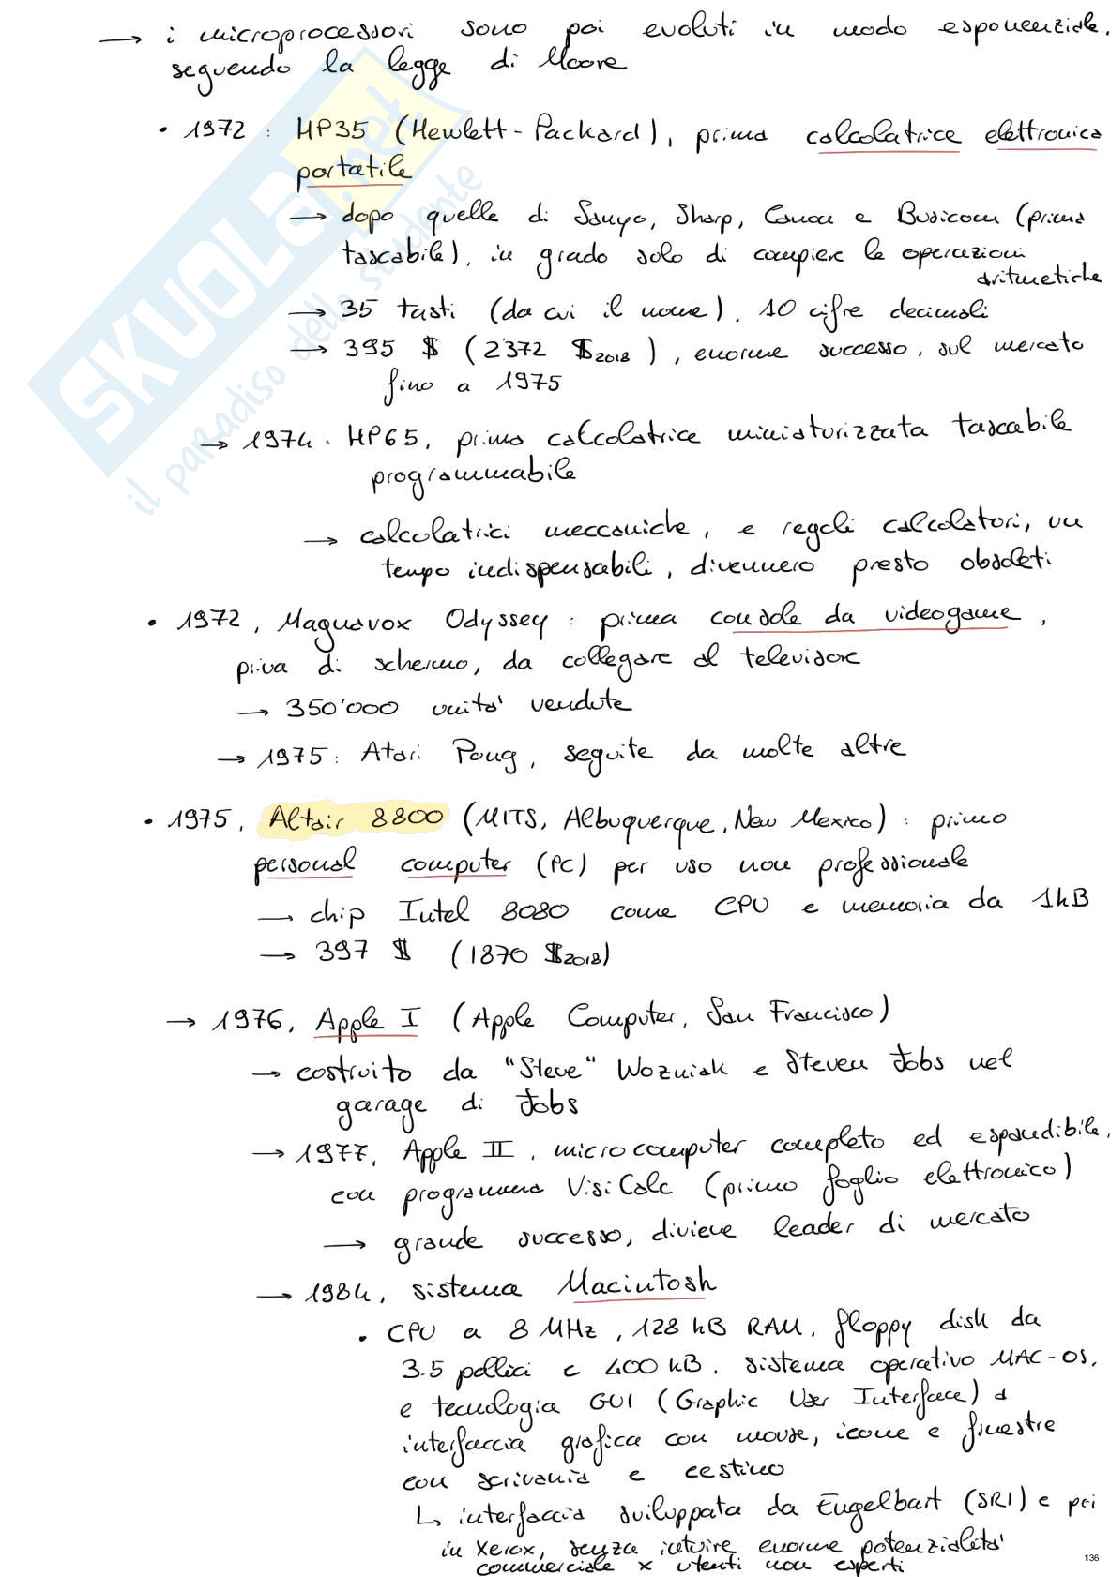 → i microprocessori sono poi evoluti in modo esponenziale,
seguendo la legge di Moore
• 1972: HP35 (Hewlett-Packard), prima calcolatrice elettronica
portatile
→ dopo quelle di Sanyo, Sharp, Canon e Busicom (prima
tascabile), in grado solo di compiere le operazioni
aritmetiche
→ 35 tasti (da cui il nome), 10 cifre decimali
→ 395 $ (2372 $2018), enorme successo, sul mercato
fino a 1975
→ 1974. HP65, prima calcolatrice miniaturizzata tascabile
programmabile
→ calcolatrici meccaniche, e regoli calcolatori, un
tempo indispensabili, divennero presto obsoleti
• 1972, Magnavox Odyssey: prima console da videogame,
priva di schermo, da collegare al televisore
→ 350'000 unita' vendute
→ 1975: Atari Pong, seguite da molte altre
• 1975, Altair 8800 (MITS, Albuquerque, New Mexico): primo
personal computer (PC) per uso non professionale
→ chip Intel 8080 come CPU e memoria da 1kB
→ 397 $ (1870 $2018)
→ 1976, Apple I (Apple Computer, San Francisco)
→ costruito da "Steve" Wozniak e Steven Jobs nel
garage di Jobs
→ 1977, Apple II, microcomputer completo ed espandibile,
con programma VisiCalc (primo foglio elettronico)
→ grande successo, diviene leader di mercato
→ 1984, sistema Macintosh
• CPU a 8 MHz, 128 kB RAM, floppy disk da
3.5 pollici e 400 kB. sistema operativo MAC-OS,
e tecnologia GUI (Graphic User Interface) a
interfaccia grafica con mouse, icone e finestre
con scrivania e cestino
↳ interfaccia sviluppata da Engelbart (SRI) e poi
in Xerox, senza intuire enorme potenzialita'
commerciale x utenti non esperti
136
SKUOLA.net
il paradiso dello studente